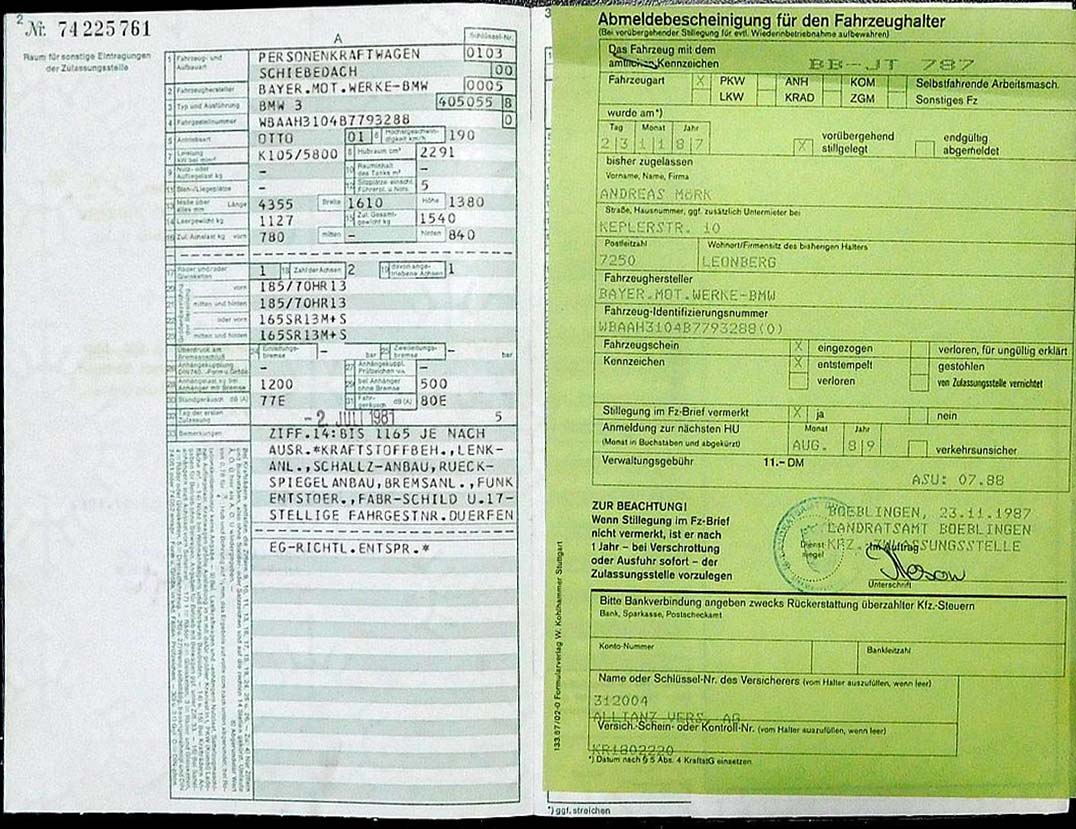 2
Nr. 74225761
Raum für sonstige Eintragungen
der Zulassungsstelle
A
Schlüssel-Nr.
1 Fahrzeug- und Aufbauart PERSONENKRAFTWAGEN 0103
SCHIEBEDACH 00
2 Fahrzeughersteller BAYER.MOT.WERKE-BMW 0005
3 Typ und Ausführung BMW 3 405055 8
4 Fahrgestellnummer WBAAH3104B7793288 0
5 Antriebsart OTTO 01 6 Höchstgeschwindigkeit km/h 190
7 Leistung kW bei min K105/5800 8 Hubraum cm³ 2291
9 Nutz- oder Aufliegelast kg – 10 Rauminhalt des Tanks m³ –
11 Steh-/Liegeplätze – 12 Sitzplätze einschl. Führerpl. u. Nots. 5
13 Maße über alles mm Länge 4355 Breite 1610 Höhe 1380
14 Leergewicht kg 1127 15 Zul. Gesamtgewicht kg 1540
16 Zul. Achslast kg vorn 780 mitten – hinten 840
17 Räder und/oder Gleisketten 1 18 Zahl der Achsen 2 19 davon angetriebene Achsen 1
20 vorn 185/70HR13
21 mitten und hinten 185/70HR13
22 oder vorn 165SR13M+S
23 mitten und hinten 165SR13M+S
Überdruck am Bremsanschluß 24 Einleitungsbremse – bar 25 Zweileitungsbremse – bar
26 Anhängekupplung DIN 740.. Form u. Größe – 27 Anhängekuppl. Prüfzeichen –
28 Anhängelast kg bei Anhänger mit Bremse 1200 29 bei Anhänger ohne Bremse 500
30 Standgeräusch dB (A) 77E 31 Fahrgeräusch dB (A) 80E
32 Tag der ersten Zulassung – 2. JULI 1981 5
33 Bemerkungen ZIFF.14:BIS 1165 JE NACH
AUSR.*KRAFTSTOFFBEH.,LENK-
ANL.,SCHALLZ-ANBAU,RUECK-
SPIEGELANBAU,BREMSANL.,FUNK
ENTSTOER.,FABR-SCHILD U.17-
STELLIGE FAHRGESTNR.DUERFEN
EG-RICHTL.ENTSPR.*
3
Abmeldebescheinigung für den Fahrzeughalter
(Bei vorübergehender Stillegung für evtl. Wiederinbetriebnahme aufbewahren)
Das Fahrzeug mit dem
amtlichen Kennzeichen BB-JT 787
Fahrzeugart X PKW ANH KOM Selbstfahrende Arbeitsmasch.
LKW KRAD ZGM Sonstiges Fz
wurde am*)
Tag Monat Jahr
23 11 87 X vorübergehend stillgelegt endgültig abgemeldet
bisher zugelassen
Vorname, Name, Firma
ANDREAS MöRK
Straße, Hausnummer, ggf. zusätzlich Untermieter bei
KEPLERSTR. 10
Postleitzahl Wohnort/Firmensitz des bisherigen Halters
7250 LEONBERG
Fahrzeughersteller
BAYER.MOT.WERKE-BMW
Fahrzeug-Identifizierungsnummer
WBAAH3104B7793288(0)
Fahrzeugschein X eingezogen verloren, für ungültig erklärt
Kennzeichen X entstempelt gestohlen
verloren von Zulassungsstelle vernichtet
Stillegung im Fz-Brief vermerkt X ja nein
Anmeldung zur nächsten HU Monat Jahr
(Monat in Buchstaben und abgekürzt) AUG. 89 verkehrsunsicher
Verwaltungsgebühr 11.- DM
ASU: 07.88
ZUR BEACHTUNG!
Wenn Stillegung im Fz-Brief
nicht vermerkt, ist er nach
1 Jahr – bei Verschrottung
oder Ausfuhr sofort – der
Zulassungsstelle vorzulegen
BOEBLINGEN, 23.11.1987
LANDRATSAMT BOEBLINGEN
KFZ.-ZULASSUNGSSTELLE
Dienstsiegel
Im Auftrag
Unterschrift
133.87/02-0 Formularverlag W. Kohlhammer Stuttgart
Bitte Bankverbindung angeben zwecks Rückerstattung überzahlter Kfz.-Steuern
Bank, Sparkasse, Postscheckamt
Konto-Nummer Bankleitzahl
Name oder Schlüssel-Nr. des Versicherers (vom Halter auszufüllen, wenn leer)
312004
ALLIANZ VERS. AG
Versich.-Schein- oder Kontroll-Nr. (vom Halter auszufüllen, wenn leer)
KR1802220
*) Datum nach § 5 Abs. 4 KraftStG einsetzen
*) ggf. streichen